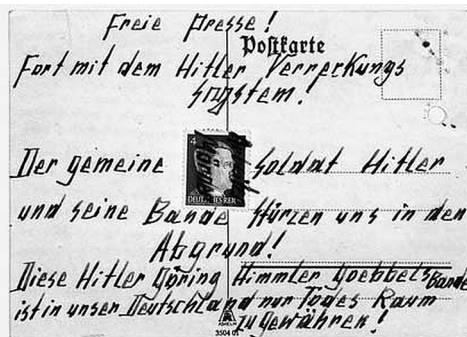 Freie Presse!
Postkarte
Fort mit dem Hitler Verreckungs
System!
4
DEUTSCHES REICH
Der gemeine Soldat Hitler
und seine Bande stürzen uns in den
Abgrund!
Diese Hitler Göring Himmler Goebbels Bande
ist in unser Deutschland nur Todes Raum
zu gewähren!
3504 01